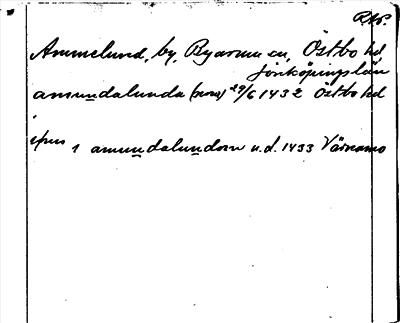 RAP.
Ammelund, by, Byarum sn, Östbo hd
Jönköpings län
amundalunda (avskr) 29/6 1432 Östbo hd
ipus
i amundalundom u.d. 1433 Värnamo